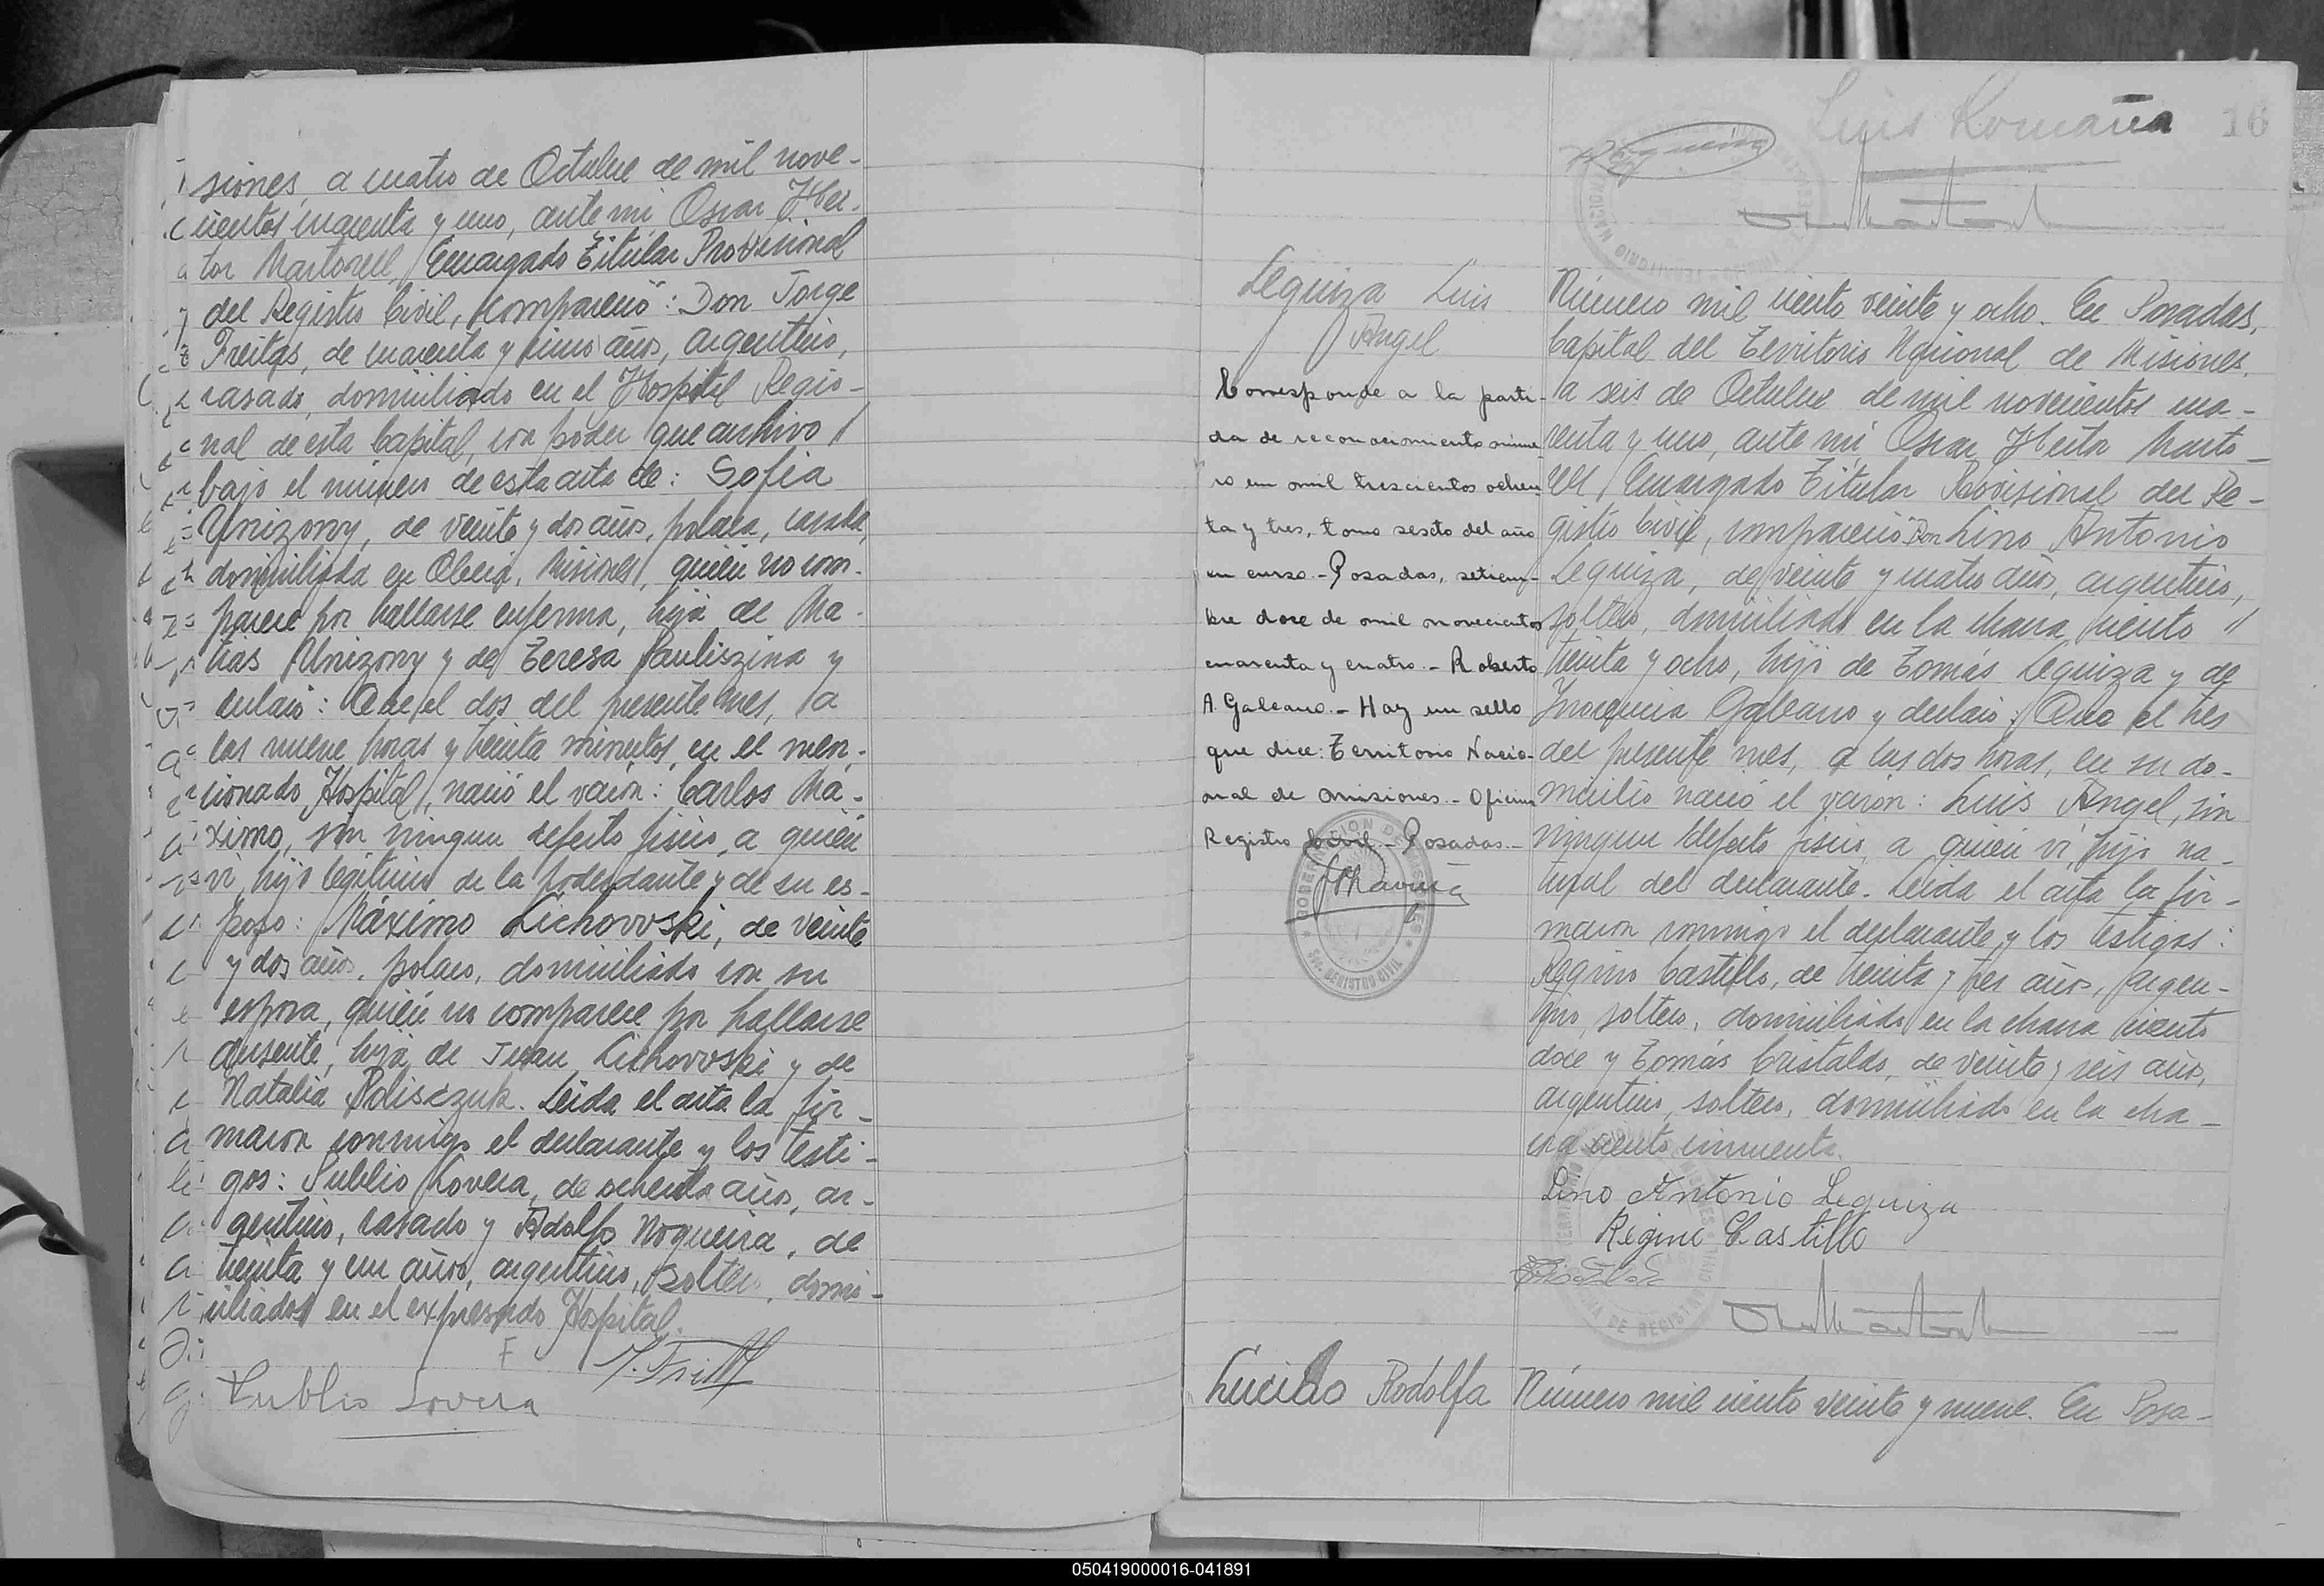 siones, a cuatro de Octubre de mil nove-
cientos cuarenta y uno, ante mí, Oscar Héc-
tor Martorell, Encargado Titular Provisional
del Registro Civil, compareció: Don Jorge
Freitas, de cuarenta y cinco años, argentino,
casado, domiciliado en el Hospital Regio-
nal de esta Capital, con poder que archivo
bajo el número de esta acta de: Sofia
Unizony, de veinte y dos años, polaca, casada,
domiciliada en Oberá, Misiones, quién no com-
parece por hallarse enferma, hija de Ma-
tias Unizony y de Teresa Pauliszina y
declaró: Que el dos del presente mes, a
las nueve horas y treinta minutos, en el men-
cionado Hospital, nació el varón: Carlos Má-
ximo, sin ningun defecto fisico, a quién
ví, hijo legitimo de la poderdante y de su es-
poso: Máximo Lichovvski, de veinte
y dos años, polaco, domiciliado con su
esposa, quién no comparece por hallarse
ausente, hijo de Juan Lichovvski y de
Natalia Polisczuk. Leida el acta la fir-
maron conmigo el declarante y los testi-
gos: Publio Lovera, de ochenta años, ar-
gentino, casado y Adolfo Nogueira, de
treinta y un años, argentino, soltero, domi-
ciliados en el expresado Hospital.
J. Freitas
Publio Lovera
Luis Romaña 16
Leguiza Luis
Angel
Corresponde a la parti-
da de reconocimiento núme
ro un mil trescientos ochen
ta y tres, tomo sexto del año
en curso.- Posadas, setiem-
bre doce de mil novecientos
cuarenta y cuatro.- Roberto
A. Galeano.- Hay un sello
que dice: Territorio Nacio-
nal de Misiones.- Oficina
Registro Civil.- Posadas.-
GOBERNACION DE MISIONES
REGISTRO CIVIL
Número mil ciento veinte y ocho. En Posadas,
Capital del Territorio Nacional de Misiones,
a seis de Octubre de mil novecientos cua-
renta y uno, ante mí, Oscar Héctor Marto-
rell, Encargado Titular Provisional del Re-
gistro Civil, compareció Don Lino Antonio
Leguiza, de veinte y cuatro años, argentino,
soltero, domiciliado en la chacra ciento
treinta y ocho, hijo de Tomás Leguiza y de
Galeano y declaró: Que el tres
del presente mes, a las dos horas, en su do-
micilio nació el varón: Luis Angel, sin
ningun defecto fisico, a quién ví, hijo na-
tural del declarante. Leida el acta la fir-
maron conmigo el declarante y los testigos:
Regino Castillo, de treinta y tres años, argen-
tino, soltero, domiciliado en la chacra ciento
doce y Tomás Cristaldo, de veinte y seis años,
argentino, soltero, domiciliado en la cha-
cra ciento cincuenta.
Lino Antonio Leguiza
Regino Castillo
Lucido Rodolfa
Número mil ciento veinte y nueve. En Posa-
050419000016-041891